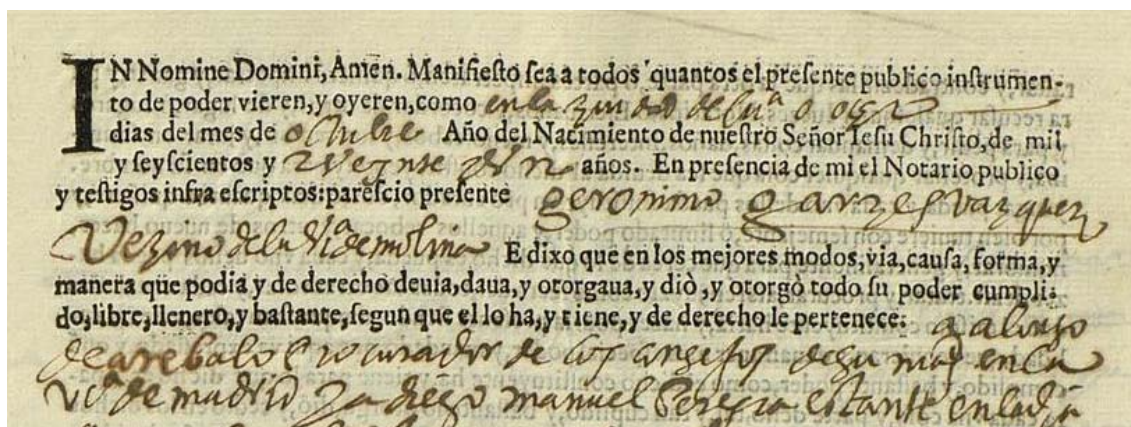 IN Nomine Domini, Amen. Manifiesto sea a todos quantos el presente publico instrumen-
to de poder vieren, y oyeren, como en la
dias del mes de octubre Año del Nacimiento de nuestro Señor Iesu Christo, de mil
y seyscientos y veynte años. En presencia de mi el Notario publico
y testigos infra escriptos: parescio presente geronimo garzes vazquez
Vezino de la Vª de molina E dixo que en los mejores modos, via, causa, forma, y
manera que podia y de derecho deuia, daua, y otorgaua, y diò, y otorgò todo su poder cumpli-
do, libre, llenero, y bastante, segun que el lo ha, y tiene, y de derecho le pertenece: a alonso
de arebalo Procurador de los en la
Vª de madrid y a diego manuel estante en la